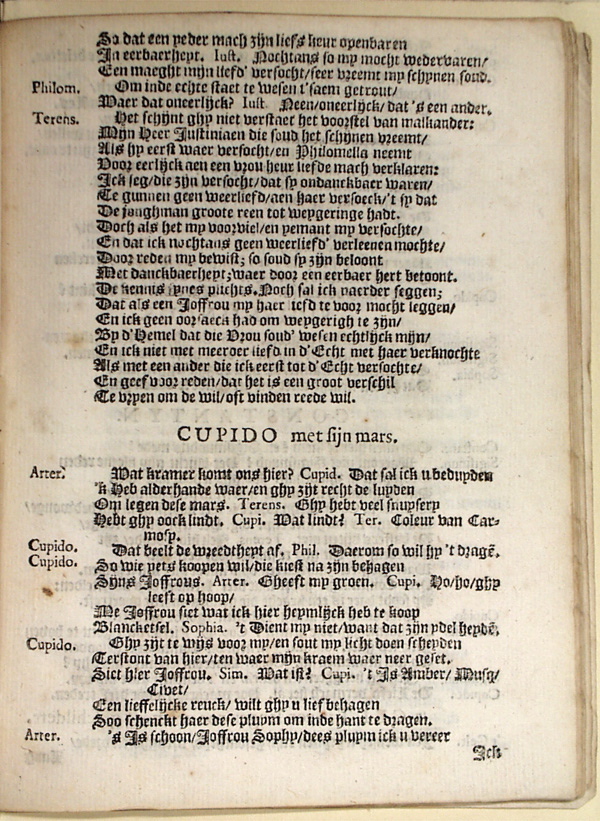 So dat een yeder mach zijn liefs keur openbaren
In eerbaerheyt. Iust. Nochtans so my mocht wedervaren/
Een maeght mijn liefd' versocht/seer vreemt my schynen soud.
Philom. Om inde echte staet te wesen t'saem getrout/
Waer dat oneerlijck? Iust. Neen/oneerlijck/dat 's een ander.
Terens. Het schijnt ghy niet verstaet het voorstel van malkander:
Mijn Heer Justiniaen die soud het schijnen vreemt/
Als hy eerst waer versocht/en Philomella neemt
Voor eerlijck aen een vrou heur liefde mach verklaren:
Ick seg/die zijn versocht/dat sy ondanckbaer waren/
Te gunnen geen weerliefd/aen haer versoeck/'t sy dat
De jonghman groote reen tot weygeringe hadt.
Doch als het my voorviel/en yemant my versochte/
En dat ick nochtans geen weerliefd' verleenen mochte/
Door reden my bewist; so soud sy zijn beloont
Met danckbaerheyt;waer door een eerbaer hert betoont.
De kennis plichts.Noch sal ick vaerder seggen;
Dat als een Joffrou my haer liefd te voor mocht leggen/
En ick geen oorsaeck had om weygerigh te zijn/
By d'Hemel dat die Vrou soud' wesen echtlijck mijn/
En ick niet met meerder liefd in d'Echt met haer verknochte
Als met een ander die ick eerst tot d'Echt versochte/
En geef voor reden/dat het is een groot verschil
Te vryen om de wil/oft vinden reede wil.
CUPIDO met sijn mars.
Arter. Wat kramer komt ons hier? Cupid. Dat sal ick u beduyden
'k Heb alderhande waer/en ghy zijt recht de luyden
Om legen dese mars. Terens. Ghy hebt veel snuysery
Hebt ghy oock lindt. Cupi. Wat lindt? Ter. Coleur van Car-
mosy.
Cupido. Dat beelt de wreedtheyt af. Phil. Daerom so wil hy 't dragē.
Cupido. So wie yets koopen wil/die kiest na zijn behagen
Syns Joffrous. Arter. Gheeft my groen. Cupi. Ho/ho/ghy
leest op hoop/
Me Joffrou siet wat ick hier heymlijck heb te koop
Blancketsel. Sophia. 't Dient my niet/want dat zijn ydel heydē;
Cupido. Ghy zijt te wijs voor my/en sout my licht doen scheyden
Terstont van hier/ten waer mijn kraem waer neer geset.
Siet hier Joffrou. Sim. Wat ist? Cupi. 't Is Amber/ Musq/
Civet/
Een lieffelijcke reuck/ wilt ghy u lief behagen
Soo schenckt haer dese pluym om inde hant te dragen.
Arter. 's Is schoon/Joffrou Sophy/dees pluym ick u vereer
Ick